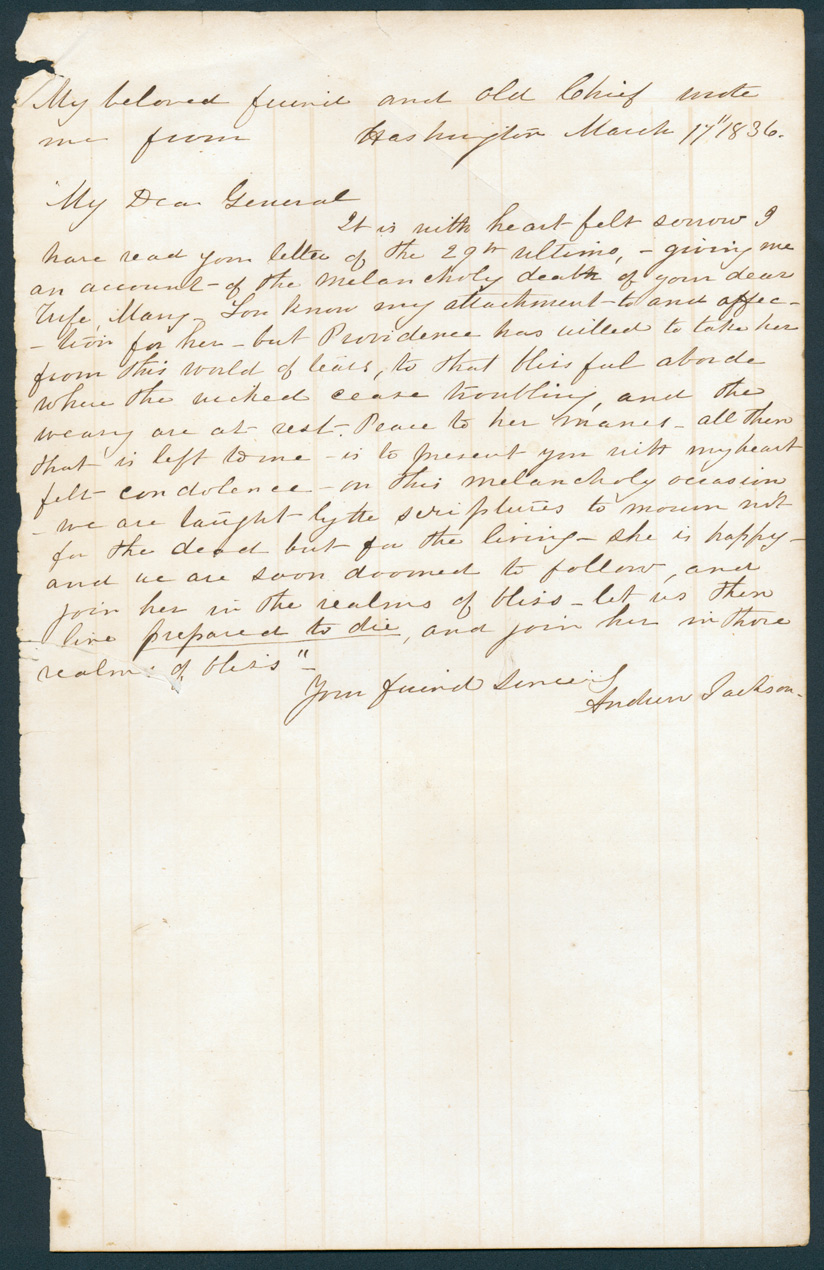 My beloved friend and old Chief wrote
me from Washington March 17" 1836.
"My Dear General
It is with heart felt sorrow I
have read your letter of the 29th ultimo, - giving me
an account - of the melancholy death of your dear
Wife, Mary - You know my attachment - to and affec-
- tion for her - but Providence has willed to take her
from this world of tears, to that blissful aborde
where the wicked cease troubling, and the
weary are at rest. Peace to her manes - all then
that is left to me - is to present you with my heart
felt - condolence - on this melancholy occasion
- we are taught by the scriptures to mourn not
for the dead but for the living - she is happy -
and we are soon doomed to follow, and
join her in the realms of bliss - let us then
live prepared to die, and join her in those
realms of bliss" -
Your friend sincerely
Andrew Jackson.